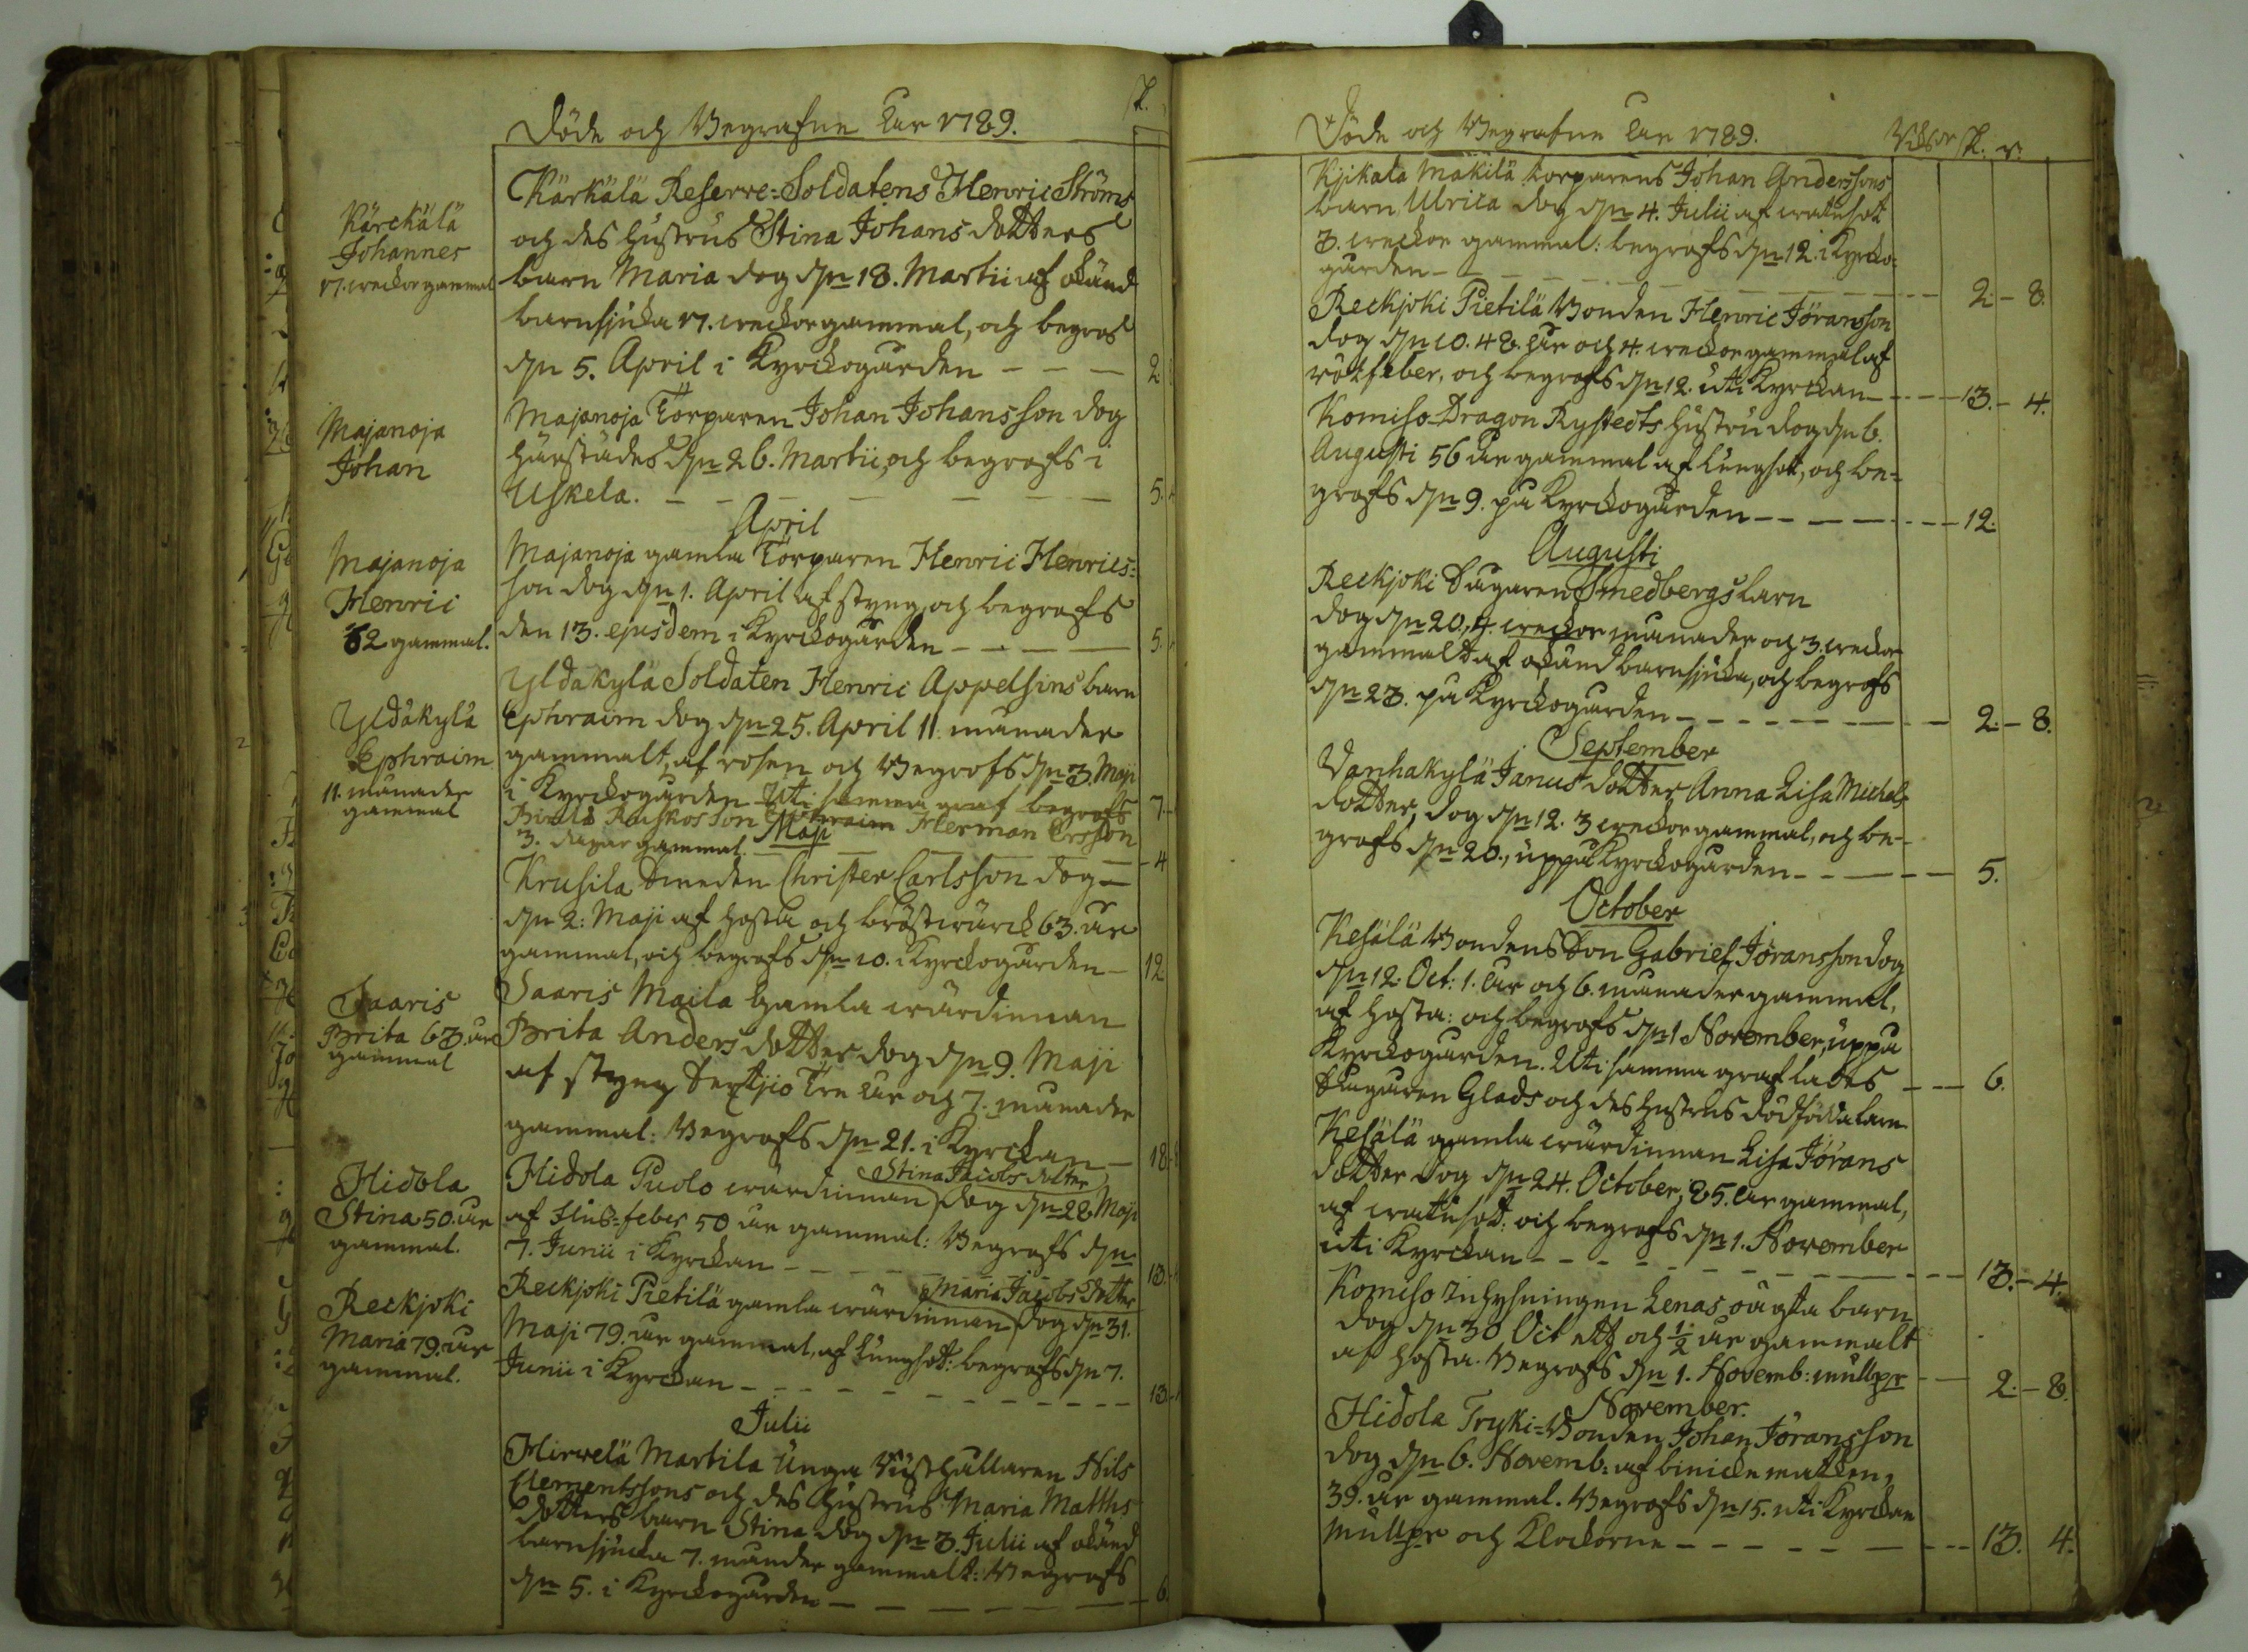 Döde och Begrafne åar 1789.
Kärckälä
Johannes
17. weckor gammal
Kärkälä Reserve-Soldatens Henric Ströms
och des hustrus Stina Johans dotters
barn Maria dog d:n 18. Martii af okänd
barnsjuka 17. weckor gammal, och begrofs
d:n 5. April i Kyrckogården - - - 2
Majanoja
Johan
Majanoja Torparen Johan Johansson dog
härstädes d:n 26. Martii, och begrofs i
Uskela. - - - - - 5.
April
Majanoja
Henric
62 gammal.
Majanoja gamla Torparen Henric Henrics-
son dog d:n 1. April af styng, och begrofs
den 13. ejusdem i Kyrckogården - - - - 5.
Yldäkylä
Ephraim
11. månader
gammal
Yldäkylä Soldaten Henric Appelsins barn
Ephraim dog d:n 25. April 11. månader
gammalt, af rosen och Begrofs d:n 3. Maji
i Kyrckogården Uti samma graf begrofs 7.
Ruskos son Herman Ersson
3. dagar gammal. - 4
Maji
Krusila Smeden Christer Carlsson dog -
d:n 2: Maji af hosta och bröstwärck 63. åar
gammal, och begrofs d:n 10. i Kyrckogården - 12
Saaris
Brita 63. åar
gammal
Saaris Maila Gamla wärdinnan
Brita Anders dotter dog d:n 9. Maji
af styng Sextijio Tre åar och 7. månader
gammal: Begrofs d:n 21. i Kyrckan - 18.
Hidola
Stina 50. åar
gammal.
Stina Jacobs dotter
Hidola Puolo wärdinnan dog d:n 28 Maji
af feber 50 åar gammal: Begrofs d:n
7. Junii i Kyrckan - - - - - 13.
Reckjoki
Maria 79. åar
gammal.
Maria Jacobs dotter
Reckjoki Pietilä gamla wärdinnan dog d:n 31.
Maji 79. åar gammal, af Lungsot: begrofs d:n 7.
Junii i Kyrckan - - - - - - - 13.
Julii
Hirvelä Martila Unga Nils
Clementssons och des hustrus Maria Matths
dotters barn Stina dog d:n 3. Julii af okänd
barnsjucka 7. månder gammalt: Begrofs
d:n 5. i Kyrckogården - - - - - - 6.
Döde och Begrafne åar 1789.
r:
Kijkala Mäkilä Torparens Johan Anderssons
barn Ulrica dog d:n 4. Julii af watusot
3. weckor gammal: begrofs d:n 12. i Kyrcko-
gården - - - - - - - 2. - 8.
Reckjoki Pietilä Bonden Henric Jöransson
dog d:n 10. 48. åar och 4. weckor gammal af
rötfeber, och begrofs d:n 12. uti Kyrckan - - - 13. - 4.
Komiso Dragon Rystedts hustru dog d:n 6.
Augusti 56 åar gammal af Lungsot, och be-
grofs d:n 9. på Kyrckogården - - - - - 12.
Augusti
Reckjoki Smedbergs barn
dog d:n 20., 4. weckor månader och 3. weckor
gammalt af okänd barnsjuka, och begrofs
d:n 23. på Kyrckogården - - - - - - 2. - 8.
September
Vanhakylä Janus dotter Anna Lisa Michels
dotter, dog d:n 12. 3 weckor gammal, och be-
grofs d:n 20., uppå Kyrckogården - - - - - 5.
October
Kesälä Bondens Son Gabriel Jöransson dog
d:n 12. Oct: 1. åar och 6. månader gammal,
af hosta: och begrofs d:n 1 November, uppå
Kyrckogården. Uti samma graf lades - - - 6.
Glads och des hustrus dödfödda barn
Kesälä gamla wärdinnan Lisa Jörans
dotter dog d:n 24. October, 85. åar gammal,
af watusot: och begrofs d:n 1. November
uti Kyrckan - - - - - - - - 13. - 4.
Komiso Inhysningen Lenas oägta barn
dog d:n 30 Oct ett och 1/2 åar gammalt
af hosta. Begrofs d:n 1. Novemb: - - - 2. - 8.
November.
Hidola Tryki-Bonden Johan Jöransson
dog d:n 6. Novemb: af
39. åar gammal. Begrofs d:n 15. uti Kyrckan
och Klockorne - - - - - - - 13. 4.